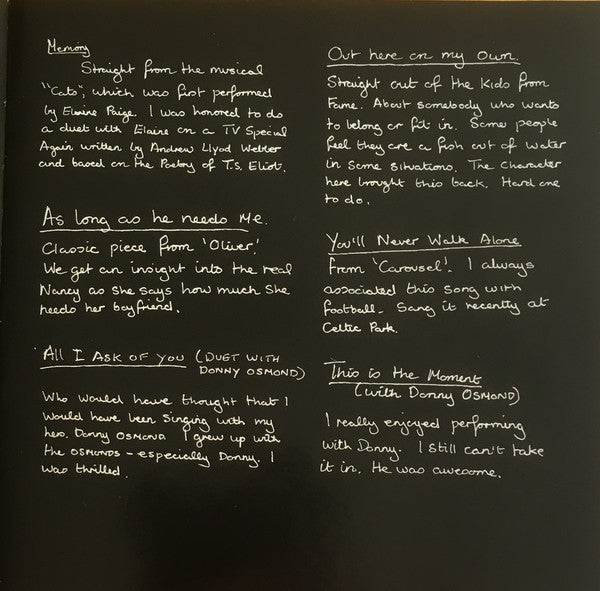 Memory
Straight from the musical
"Cats", which was first performed
by Elaine Paige. I was honored to do
a duet with Elaine on a TV Special
Again written by Andrew Llyod Webber
and based on the Poetry of T.S. Eliot.
As long as he needs Me.
Classic piece from 'Oliver'.
We get an insight into the real
Nancy as she says how much she
needs her boyfriend.
All I Ask of You (Duet with
Donny Osmond)
Who would have thought that I
would have been singing with my
hero. Donny Osmond I grew up with
the Osmonds - especially Donny. I
was thrilled.
Out here on my own.
Straight out of the Kids from
Fame. About somebody who wants
to belong or fit in. Some people
feel they are a fish out of water
in some situations. The character
here brought this back. Hard one
to do.
You'll Never Walk Alone
From 'Carousel'. I always
associated this song with
football. Sang it recently at
Celtic Park.
This is the Moment
(with Donny Osmond)
I really enjoyed performing
with Donny. I still can't take
it in. He was awesome.